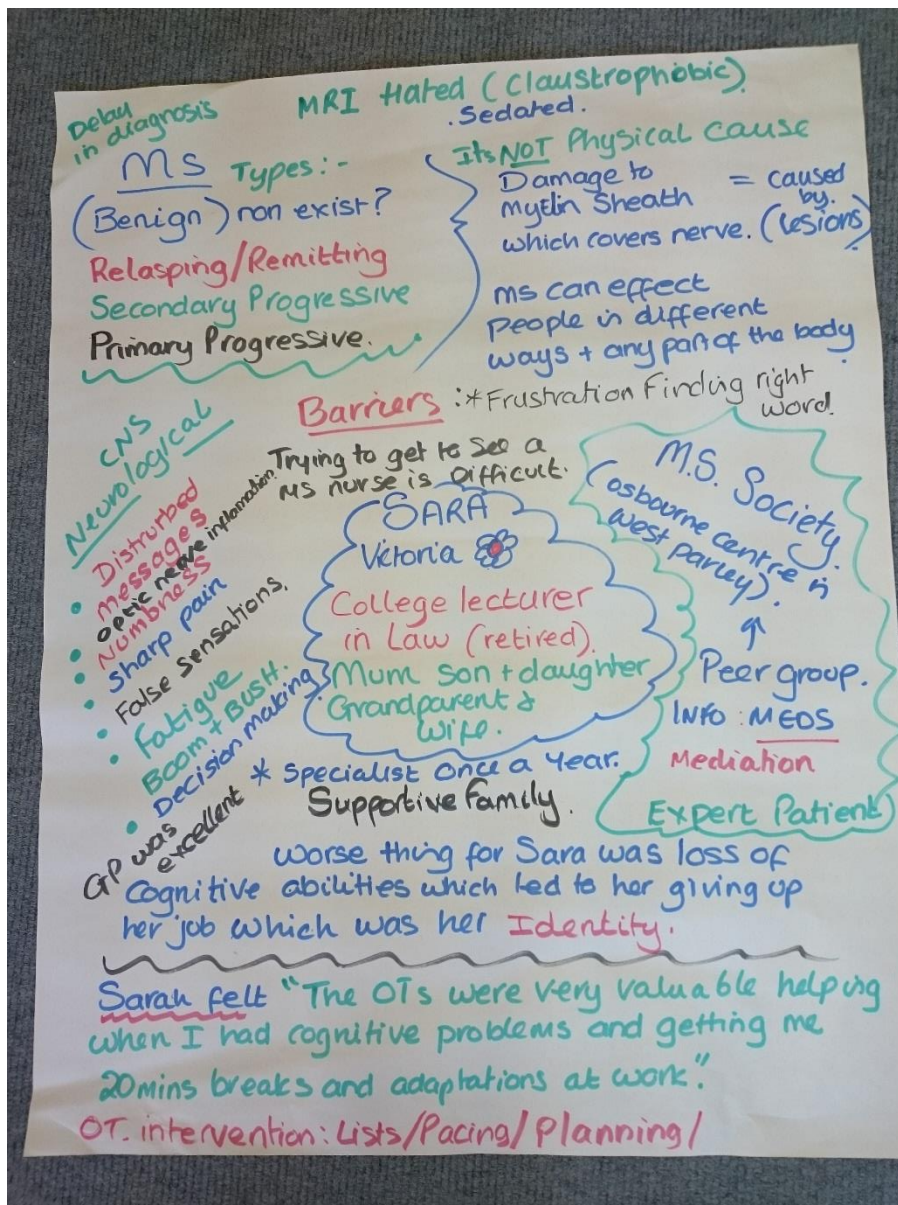 Delay
in diagnosis
MRI Hated (Claustrophobic)
. Sedated.
MS Types:-
(Benign) non exist?
Relasping/Remitting
Secondary Progressive
Primary Progressive.
Its NOT Physical cause
Damage to = caused
Myelin Sheath by.
which covers nerve. (lesions)
ms can effect
people in different
ways + any part of the body
Barriers : * Frustration Finding right
word.
Trying to get to see a
MS nurse is Difficult.
CNS
Neurological
• Distrurbed
messages
• optic nerve inflamation.
• Numbness
• Sharp pain
• False sensations.
• Fatigue
Boom + Bust.
• Decision making
GP was
excellent
SARA
Victoria
College lecturer
in Law (retired).
Mum son + daughter
Grandparent &
Wife.
* Specialist once a year.
Supportive Family.
M.S. Society.
(osbourne centre in
West parley).
↑
Peer group.
INFO : MEDS
Mediation
Expert Patient
worse thing for Sara was loss of
Cognitive abilities which led to her giving up
her job which was her Identity.
Sarah felt "The OTs were very valuable helping
when I had cognitive problems and getting me
20mins breaks and adaptations at work."
OT. intervention: Lists/Pacing/Planning/